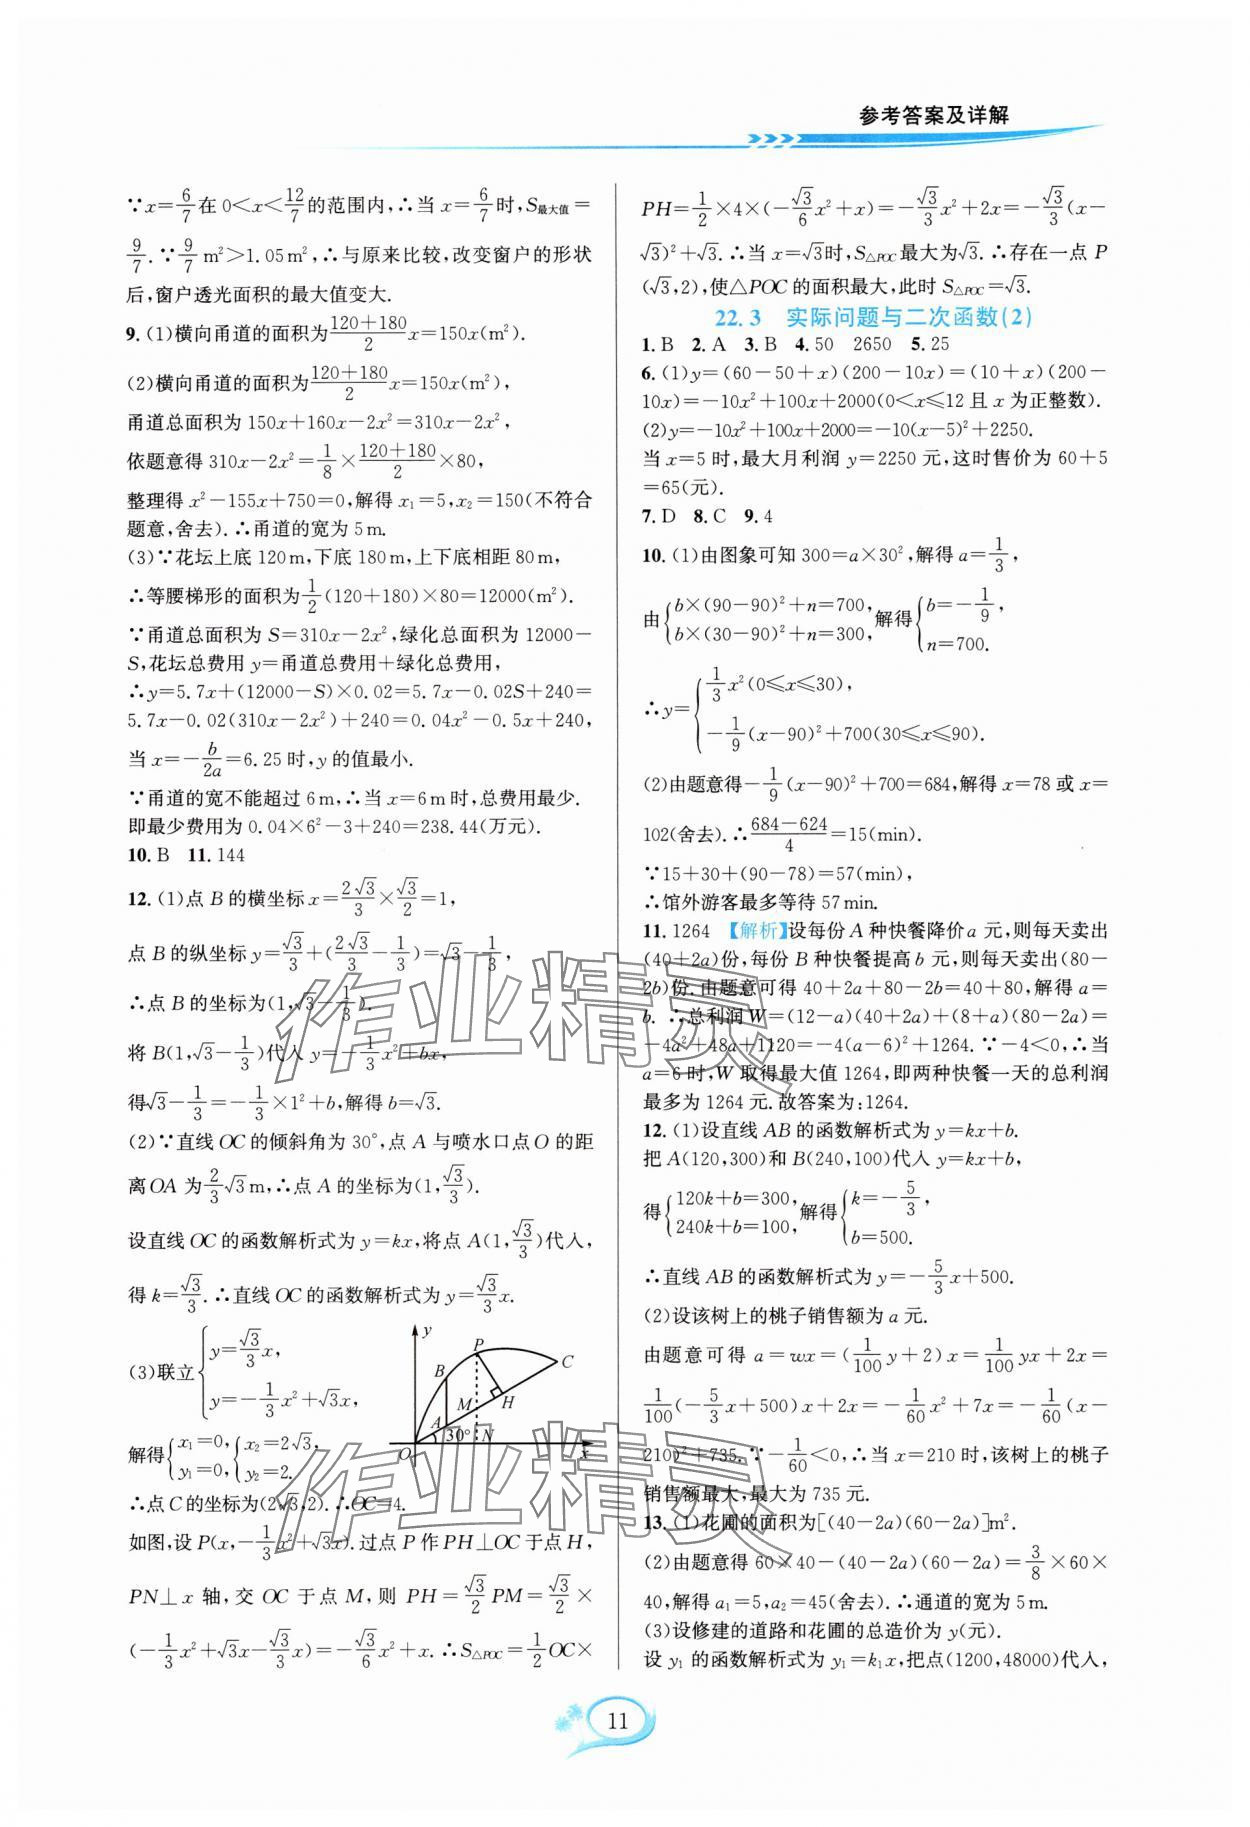 参考答案及详解
∵x=6/7在0<x<12/7的范围内,∴当x=6/7时,S最大值=
9/7.∵9/7 m²>1.05m²,∴与原来比较,改变窗户的形状
后,窗户透光面积的最大值变大.
9.(1)横向甬道的面积为(120+180)/2 x=150x(m²).
(2)横向甬道的面积为(120+180)/2 x=150x(m²),
甬道总面积为150x+160x-2x²=310x-2x²,
依题意得310x-2x²=1/8×(120+180)/2×80,
整理得x²-155x+750=0,解得x₁=5,x₂=150(不符合
题意,舍去).∴甬道的宽为5m.
(3)∵花坛上底120m,下底180m,上下底相距80m,
∴等腰梯形的面积为1/2(120+180)×80=12000(m²).
∵甬道总面积为S=310x-2x²,绿化总面积为12000-
S,花坛总费用y=甬道总费用+绿化总费用,
∴y=5.7x+(12000-S)×0.02=5.7x-0.02S+240=
5.7x-0.02(310x-2x²)+240=0.04x²-0.5x+240,
当x=-b/2a=6.25时,y的值最小.
∵甬道的宽不能超过6m,∴当x=6m时,总费用最少.
即最少费用为0.04×6²-3+240=238.44(万元).
10.B 11.144
12.(1)点B的横坐标x=2√3/3×√3/2=1,
点B的纵坐标y=√3/3+(2√3/3-1/3)=√3-1/3,
∴点B的坐标为(1,√3-1/3).
将B(1,√3-1/3)代入y=-1/3x²+bx,
得√3-1/3=-1/3×1²+b,解得b=√3.
(2)∵直线OC的倾斜角为30°,点A与喷水口点O的距
离OA为2/3√3m,∴点A的坐标为(1,√3/3).
设直线OC的函数解析式为y=kx,将点A(1,√3/3)代入,
得k=√3/3.∴直线OC的函数解析式为y=√3/3x.
(3)联立{y=√3/3x,
y=-1/3x²+√3x,
解得{x₁=0,y₁=0,{x₂=2√3,y₂=2.
y P C B M H A 30° N O x
∴点C的坐标为(2√3,2).∴OC=4.
如图,设P(x,-1/3x²+√3x).过点P作PH⊥OC于点H,
PN⊥x轴,交OC于点M,则PH=√3/2PM=√3/2×
(-1/3x²+√3x-√3/3x)=-√3/6x²+x.∴S△POC=1/2OC×
PH=1/2×4×(-√3/6x²+x)=-√3/3x²+2x=-√3/3(x-
√3)²+√3.∴当x=√3时,S△POC最大为√3.∴存在一点P
(√3,2),使△POC的面积最大,此时S△POC=√3.
22.3 实际问题与二次函数(2)
1.B 2.A 3.B 4.50 2650 5.25
6.(1)y=(60-50+x)(200-10x)=(10+x)(200-
10x)=-10x²+100x+2000(0<x≤12且x为正整数).
(2)y=-10x²+100x+2000=-10(x-5)²+2250.
当x=5时,最大月利润y=2250元,这时售价为60+5
=65(元).
7.D 8.C 9.4
10.(1)由图象可知300=a×30²,解得a=1/3,
由{b×(90-90)²+n=700,b×(30-90)²+n=300,解得{b=-1/9,n=700.
∴y={1/3x²(0≤x≤30),
-1/9(x-90)²+700(30≤x≤90).
(2)由题意得-1/9(x-90)²+700=684,解得x=78或x=
102(舍去).∴(684-624)/4=15(min).
∵15+30+(90-78)=57(min),
∴馆外游客最多等待57min.
11.1264 【解析】设每份A种快餐降价a元,则每天卖出
(40+2a)份,每份B种快餐提高b元,则每天卖出(80-
2b)份.由题意可得40+2a+80-2b=40+80,解得a=
b.∴总利润W=(12-a)(40+2a)+(8+a)(80-2a)=
-4a²+48a+1120=-4(a-6)²+1264.∵-4<0,∴当
a=6时,W取得最大值1264,即两种快餐一天的总利润
最多为1264元.故答案为:1264.
12.(1)设直线AB的函数解析式为y=kx+b.
把A(120,300)和B(240,100)代入y=kx+b,
得{120k+b=300,240k+b=100,解得{k=-5/3,b=500.
∴直线AB的函数解析式为y=-5/3x+500.
(2)设该树上的桃子销售额为a元.
由题意可得a=wx=(1/100y+2)x=1/100yx+2x=
1/100(-5/3x+500)x+2x=-1/60x²+7x=-1/60(x-
210)²+735.∵-1/60<0,∴当x=210时,该树上的桃子
销售额最大,最大为735元.
13.(1)花圃的面积为[(40-2a)(60-2a)]m².
(2)由题意得60×40-(40-2a)(60-2a)=3/8×60×
40,解得a₁=5,a₂=45(舍去).∴通道的宽为5m.
(3)设修建的道路和花圃的总造价为y(元).
设y₁的函数解析式为y₁=k₁x,把点(1200,48000)代入,
11
作业精灵
作业精灵